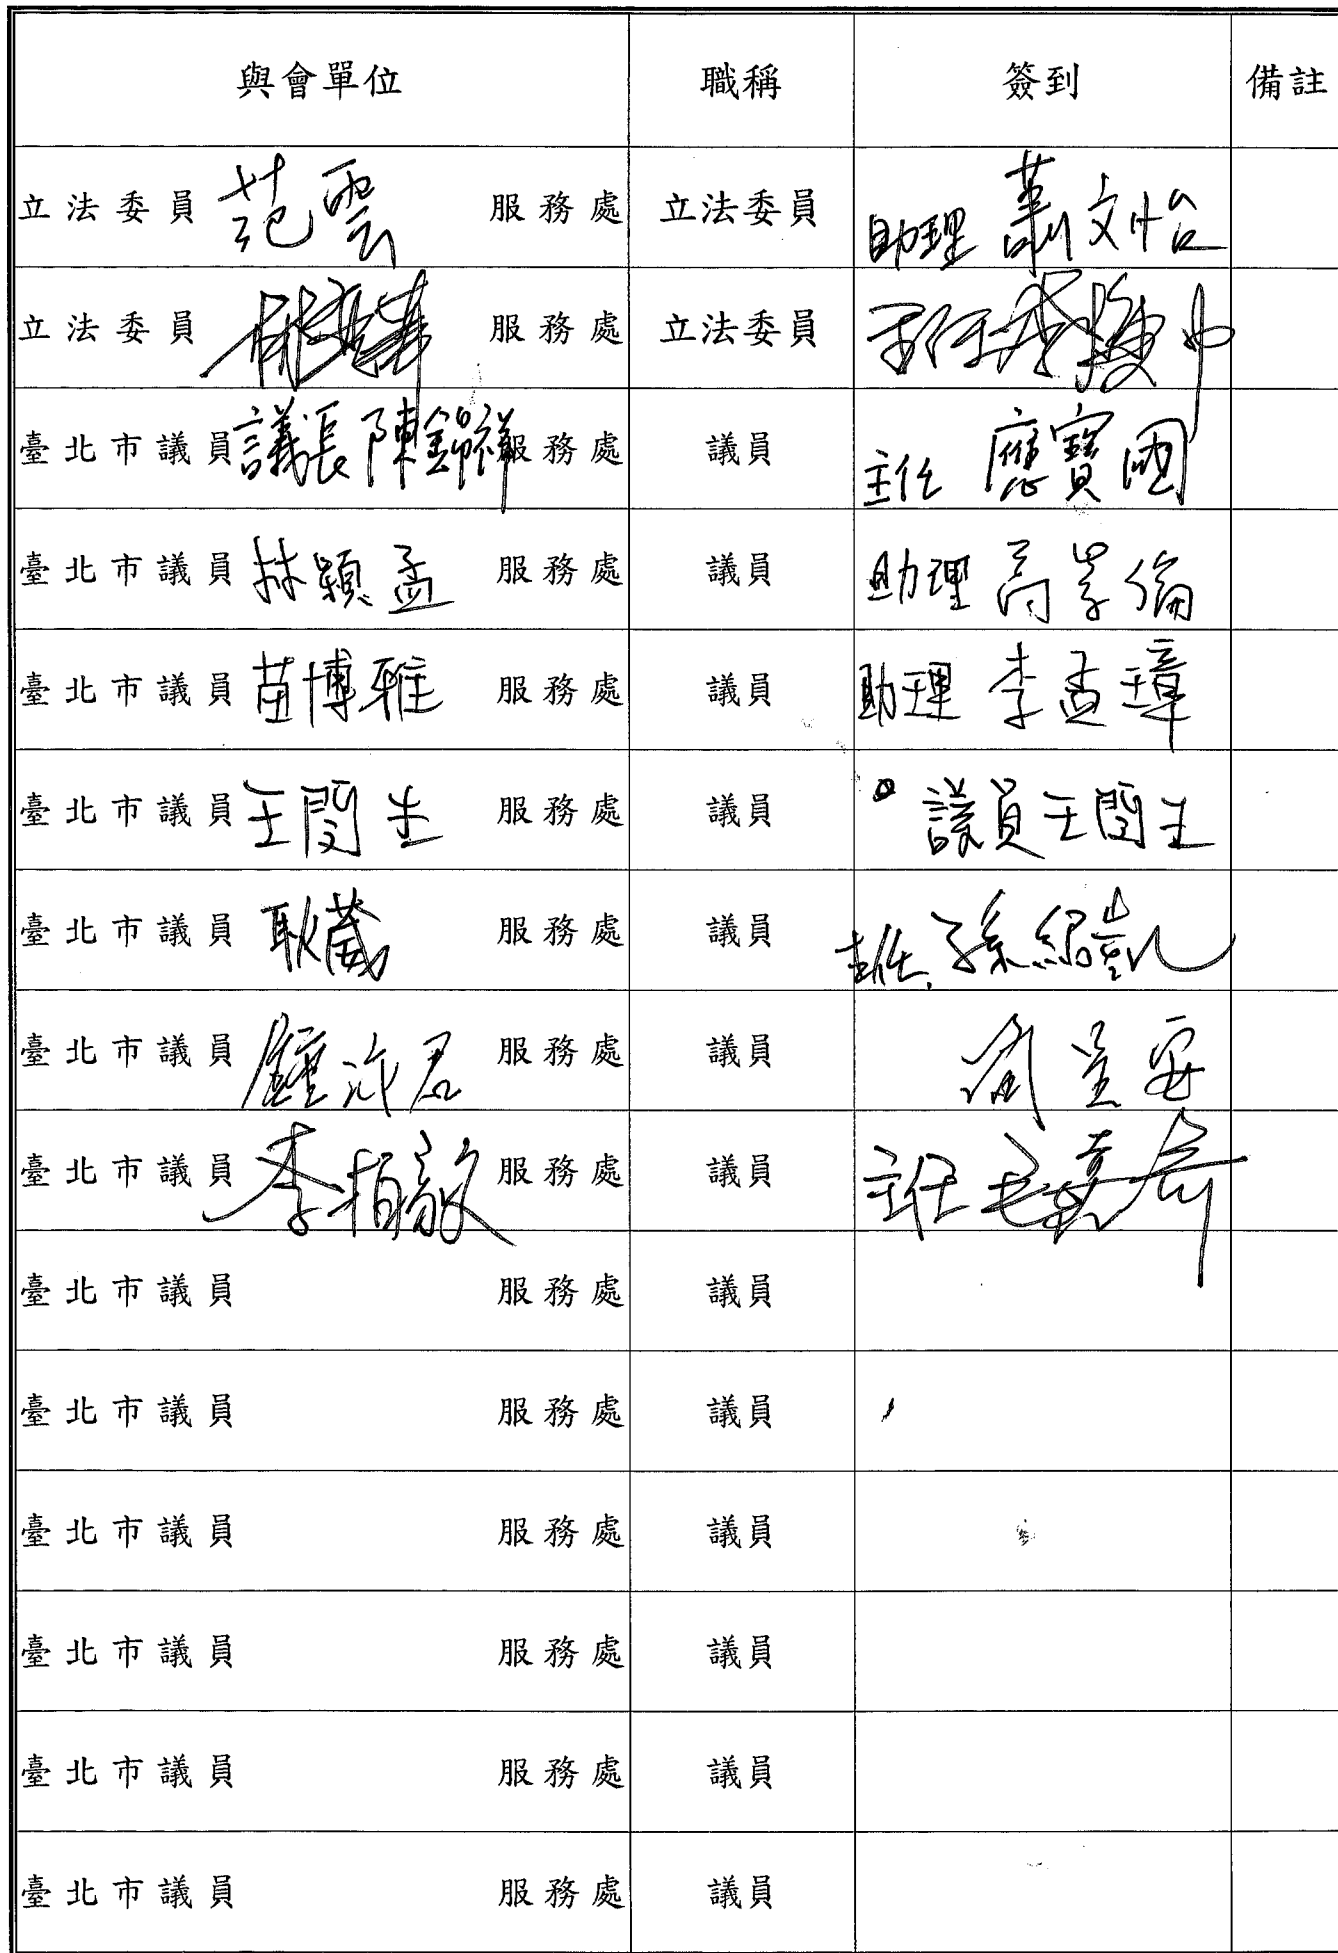 與會單位 職稱 簽到 備註
立法委員 范雲 服務處 立法委員 助理 蕭文怡
立法委員 服務處 立法委員
臺北市議員 議長陳錦祥 服務處 議員 主任 應寶國
臺北市議員 林穎孟 服務處 議員 助理 高
臺北市議員 苗博雅 服務處 議員 助理 李孟璋
臺北市議員 王閔生 服務處 議員 議員王閔生
臺北市議員 耿葳 服務處 議員 主任 孫紹凱
臺北市議員 鍾沛君 服務處 議員
臺北市議員 李柏毅 服務處 議員 主任
臺北市議員 服務處 議員
臺北市議員 服務處 議員
臺北市議員 服務處 議員
臺北市議員 服務處 議員
臺北市議員 服務處 議員
臺北市議員 服務處 議員